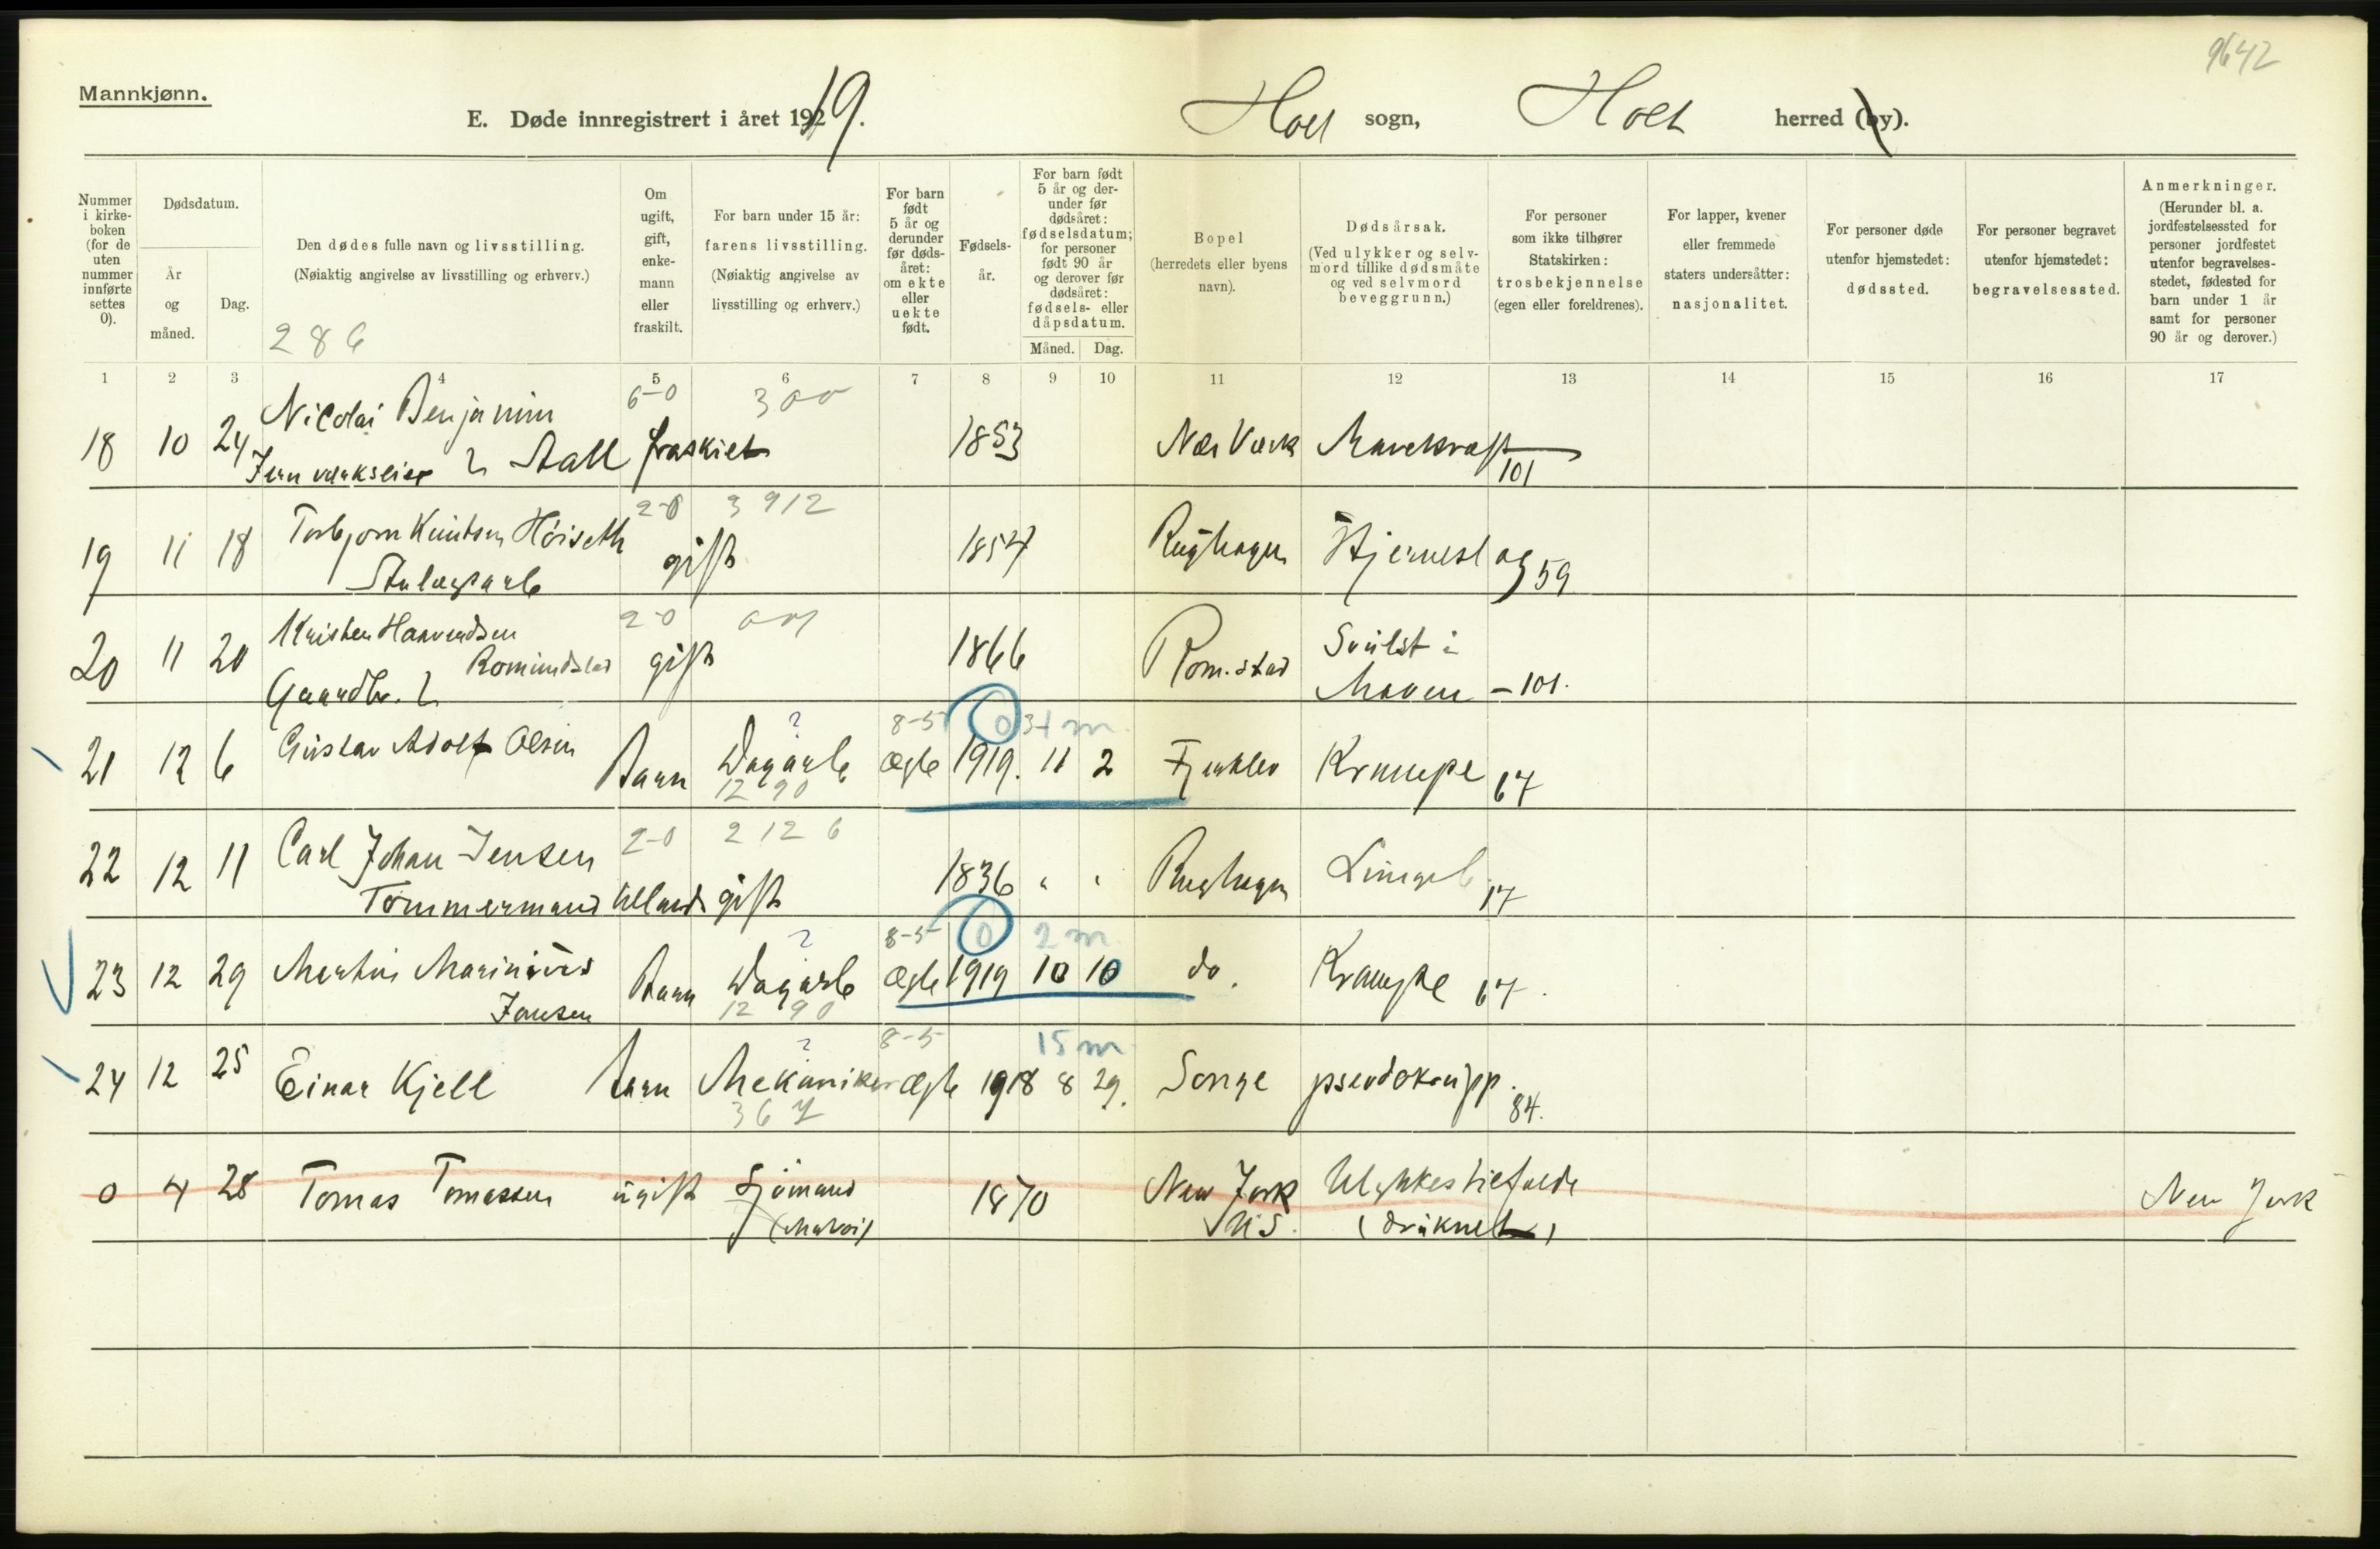 9642
Mannkjønn.
E. Døde innregistrert i året 1919. Holt sogn, Holt herred (by).
Nummer i kirke-boken (for de uten nummer innførte settes 0).
Dødsdatum.
År og måned.
Dag.
Den dødes fulle navn og livsstilling.
(Nøiaktig angivelse av livsstilling og erhverv.)
286
Om ugift, gift, enke-mann eller fraskilt.
For barn under 15 år:
farens livsstilling.
(Nøiaktig angivelse av livsstilling og erhverv.)
For barn født 5 år og derunder før døds-året: om ekte eller uekte født.
Fødsels-år.
For barn født 5 år og der-under før dødsåret: fødselsdatum; for personer født 90 år og derover før dødsåret: fødsels- eller dåpsdatum.
Måned. Dag.
Bopel
(herredets eller byens navn).
Dødsårsak.
(Ved ulykker og selv-mord tillike dødsmåte og ved selvmord beveggrunn.)
For personer som ikke tilhører Statskirken: trosbekjennelse (egen eller foreldrenes).
For lapper, kvener eller fremmede staters undersåtter: nasjonalitet.
For personer døde utenfor hjemstedet: dødssted.
For personer begravet utenfor hjemstedet: begravelsessted.
Anmerkninger.
(Herunder bl. a. jordfestelsessted for personer jordfestet utenfor begravelses-stedet, fødested for barn under 1 år samt for personer 90 år og derover.)
1 2 3 4 5 6 7 8 9 10 11 12 13 14 15 16 17
6-0 300
18 10 24 Nicolai Benjamin Aall fraskilt 1853 Næs Værk Mavekræft 101
Jernverkseier
2-0 3912
19 11 18 Torbjørn Knutsen Høiseth gift 1854 Rughagen Hjerneslag 59
20 11 20 Kristen Haavendsen Romundstad gift 1866 Rom.stad Svulst i
Gaardbr. Maven - 101.
8-5 0 31 m.
21 12 6 Gustav Adolf Olsen Barn Dagarb Ægte 1919. 11 2 Fjærkleiv Krampe 67
12 90
2-0 2126
22 12 11 Carl Johan Jensen gift 1836 " " Rughagen Lungeb 17
Tømmermand
8-5 0 2 m.
23 12 29 Martin Marinius Barn Dagarb Ægte 1919 10 10 do. Krampe 67.
Jansen 12 90
8-5 15 m
24 12 25 Einar Kjell barn Mekaniker Ægte 1918 8 29. Songe pseudokrupp. 84.
367
0 4 28 Tomas Tomassen ugift Sjømand 1870 New York Ulykkestilfælde New York
U.S. (druknet)